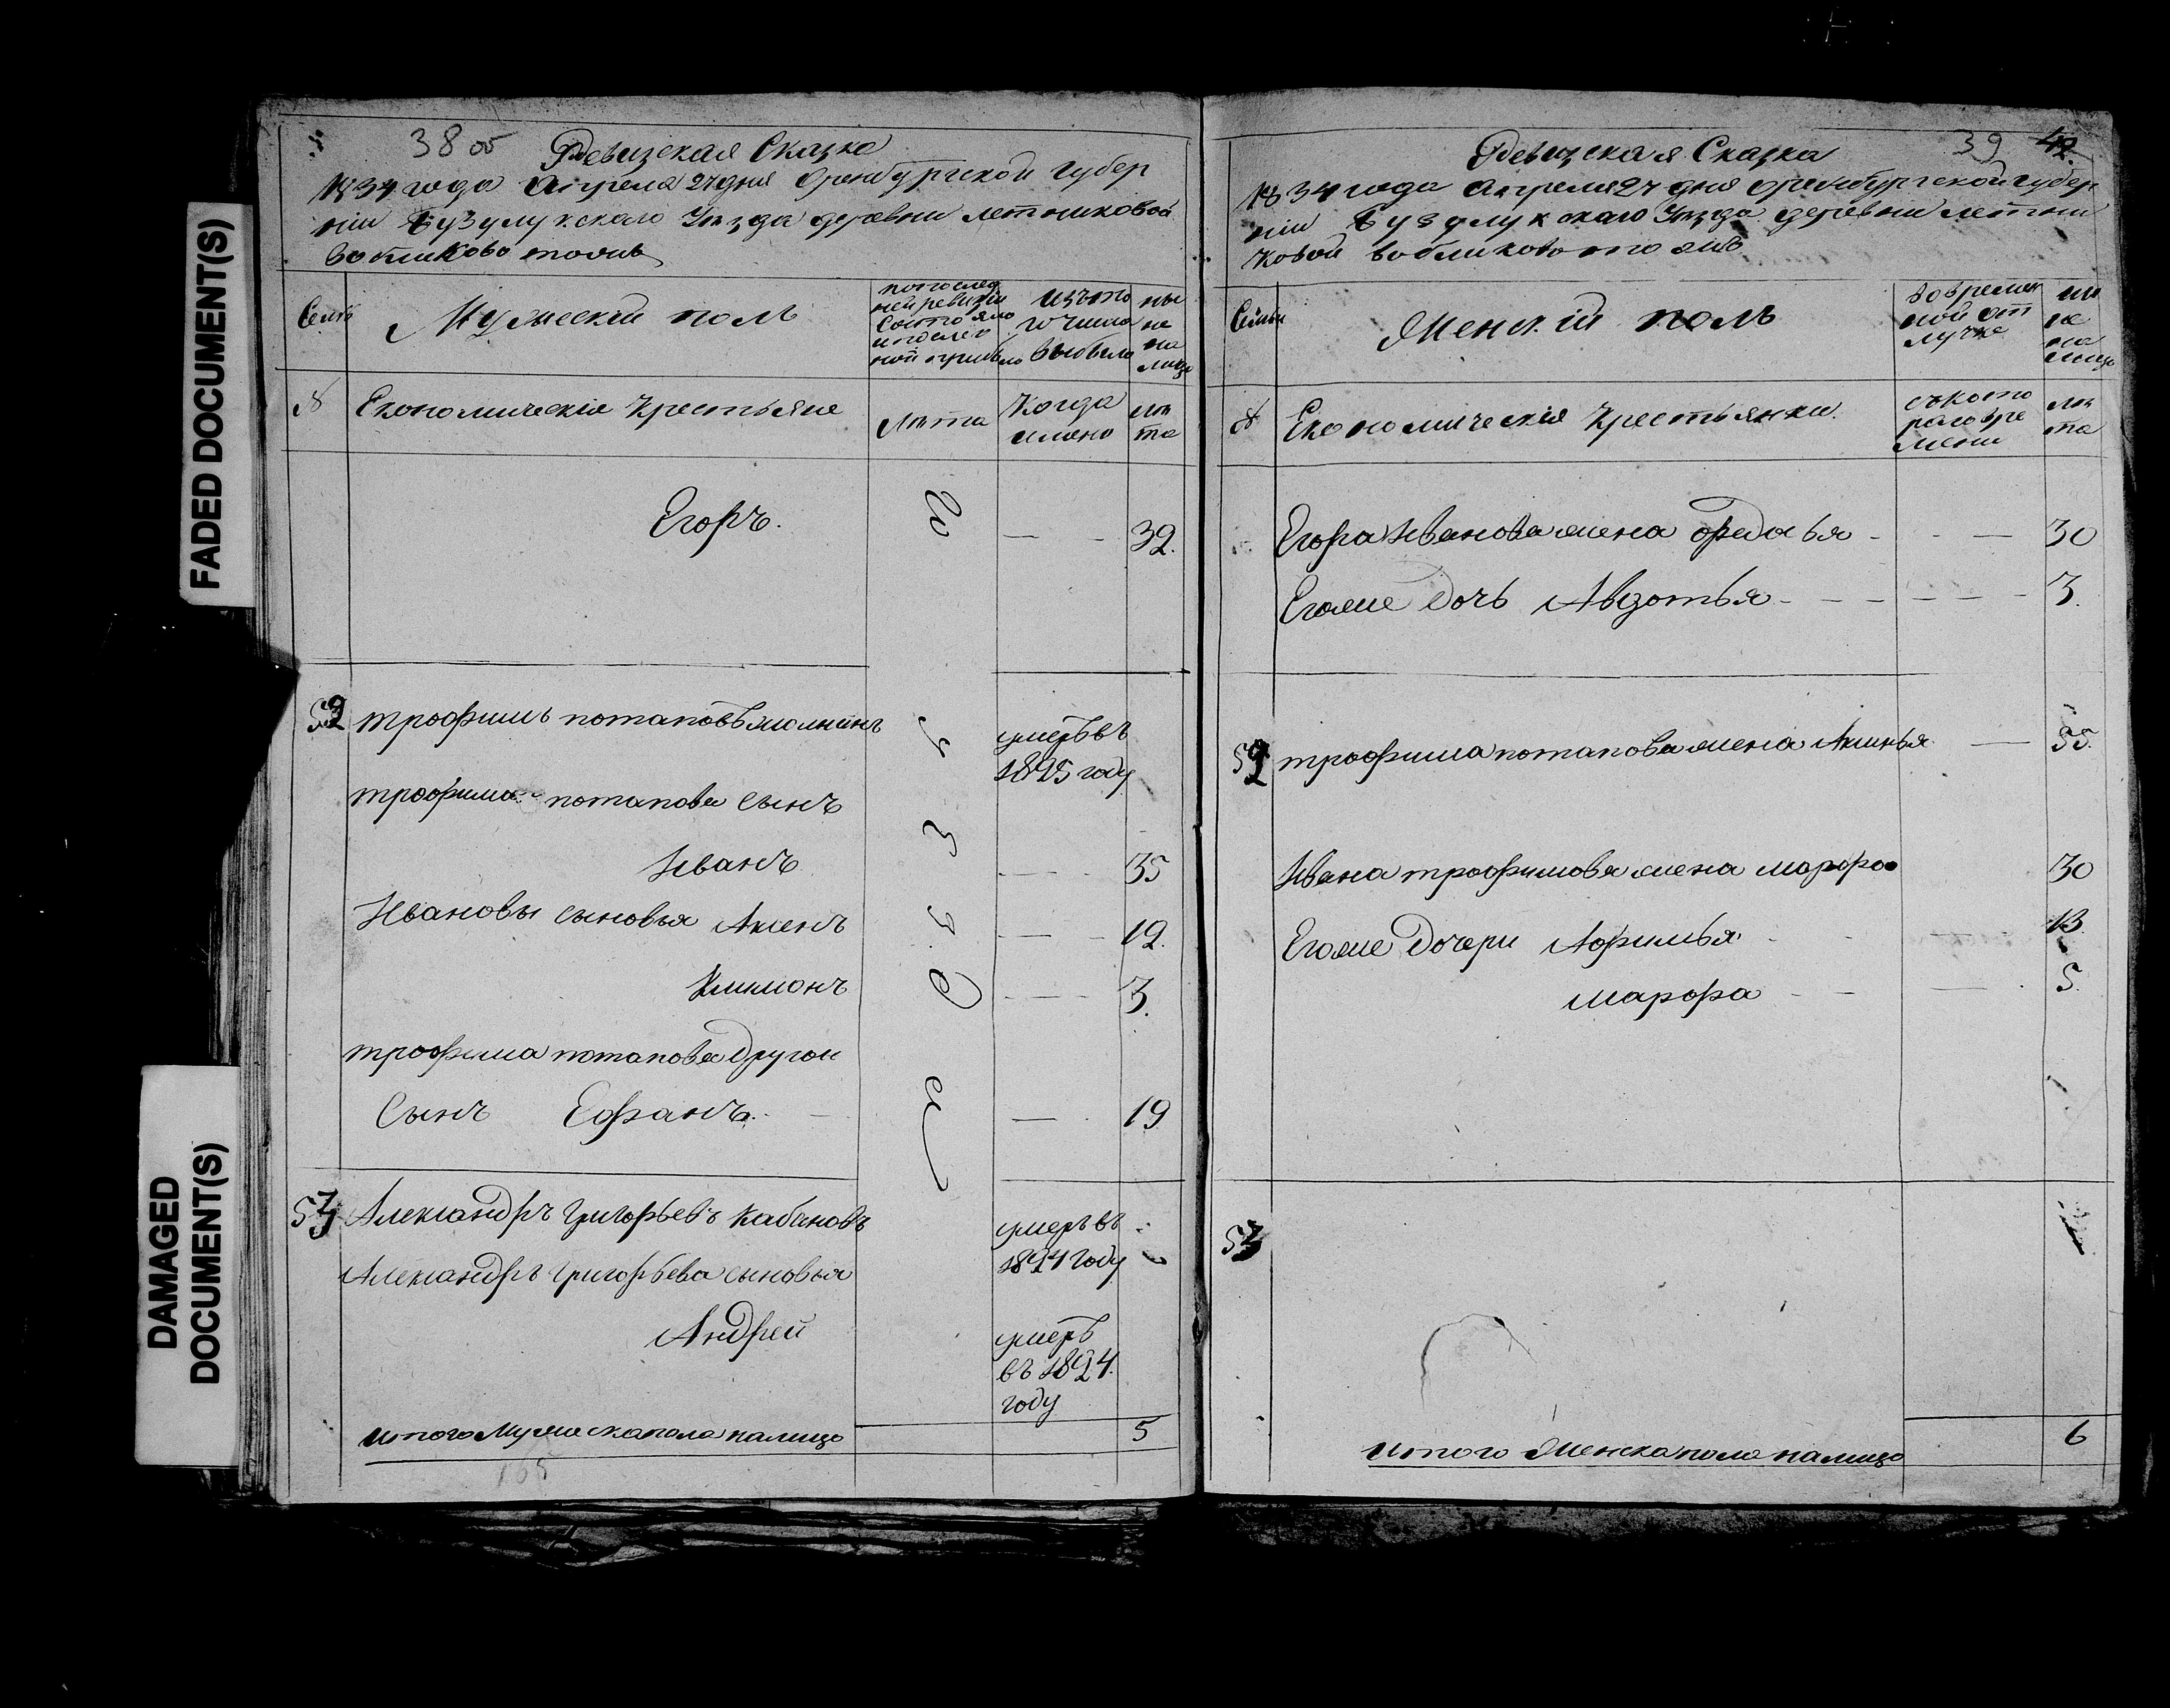 FADED DOCUMENT(S)
DAMAGED
DOCUMENT(S)
38 об
Ревизская Сказка
1834 года Апреля 27 дня Оренбургской Губер
нiи Бузулукскаго Уѣзда деревни летниковой
Семьи
Мужескiй полъ
по послед
ней ревизiи
состояло
и после
ной прибыло
изъ то
го числа
выбыло
ны
не
на
лицо
№
Економическiе Крестьяне
Лѣта
Когда
имено
Лѣ
та
Егоръ.
32.
52
трофимъ потаповъ
умеръ въ
1825 году
трофима потапова сынъ
Иванъ
35
Ивановы сыновья Аксенъ
12.
3.
трофима потапова другои
Сынъ Ефанъ.
19
53
Александръ Григорьевъ Кабановъ
умеръ въ
1824 году
Александръ Григорьева сыновья
Андрей
умеръ
въ 1824.
году
итого Мужеска пола налицо
5
165
39
42.
Ревизская Сказка
1834 года Апреля 27 дня Оренбургской Губер
нiи Бузулукскаго Уѣзда деревни летни
ковой
Семьи
Женскiй полъ
во времен
ной от
лучке
ны
не
на
лицо
№
Економическiя Крестьянки.
съ кото
раго вре
мени
лѣ
та
Егора Иванова жена федосья
30
Егоже дочь Авдотья
3.
52
трофима потапова жена Аксинья
55.
Ивана трофимова жена марфа
30
Егоже дочери Афимья
13.
марфа
5.
53
итого Женска пола налицо
6